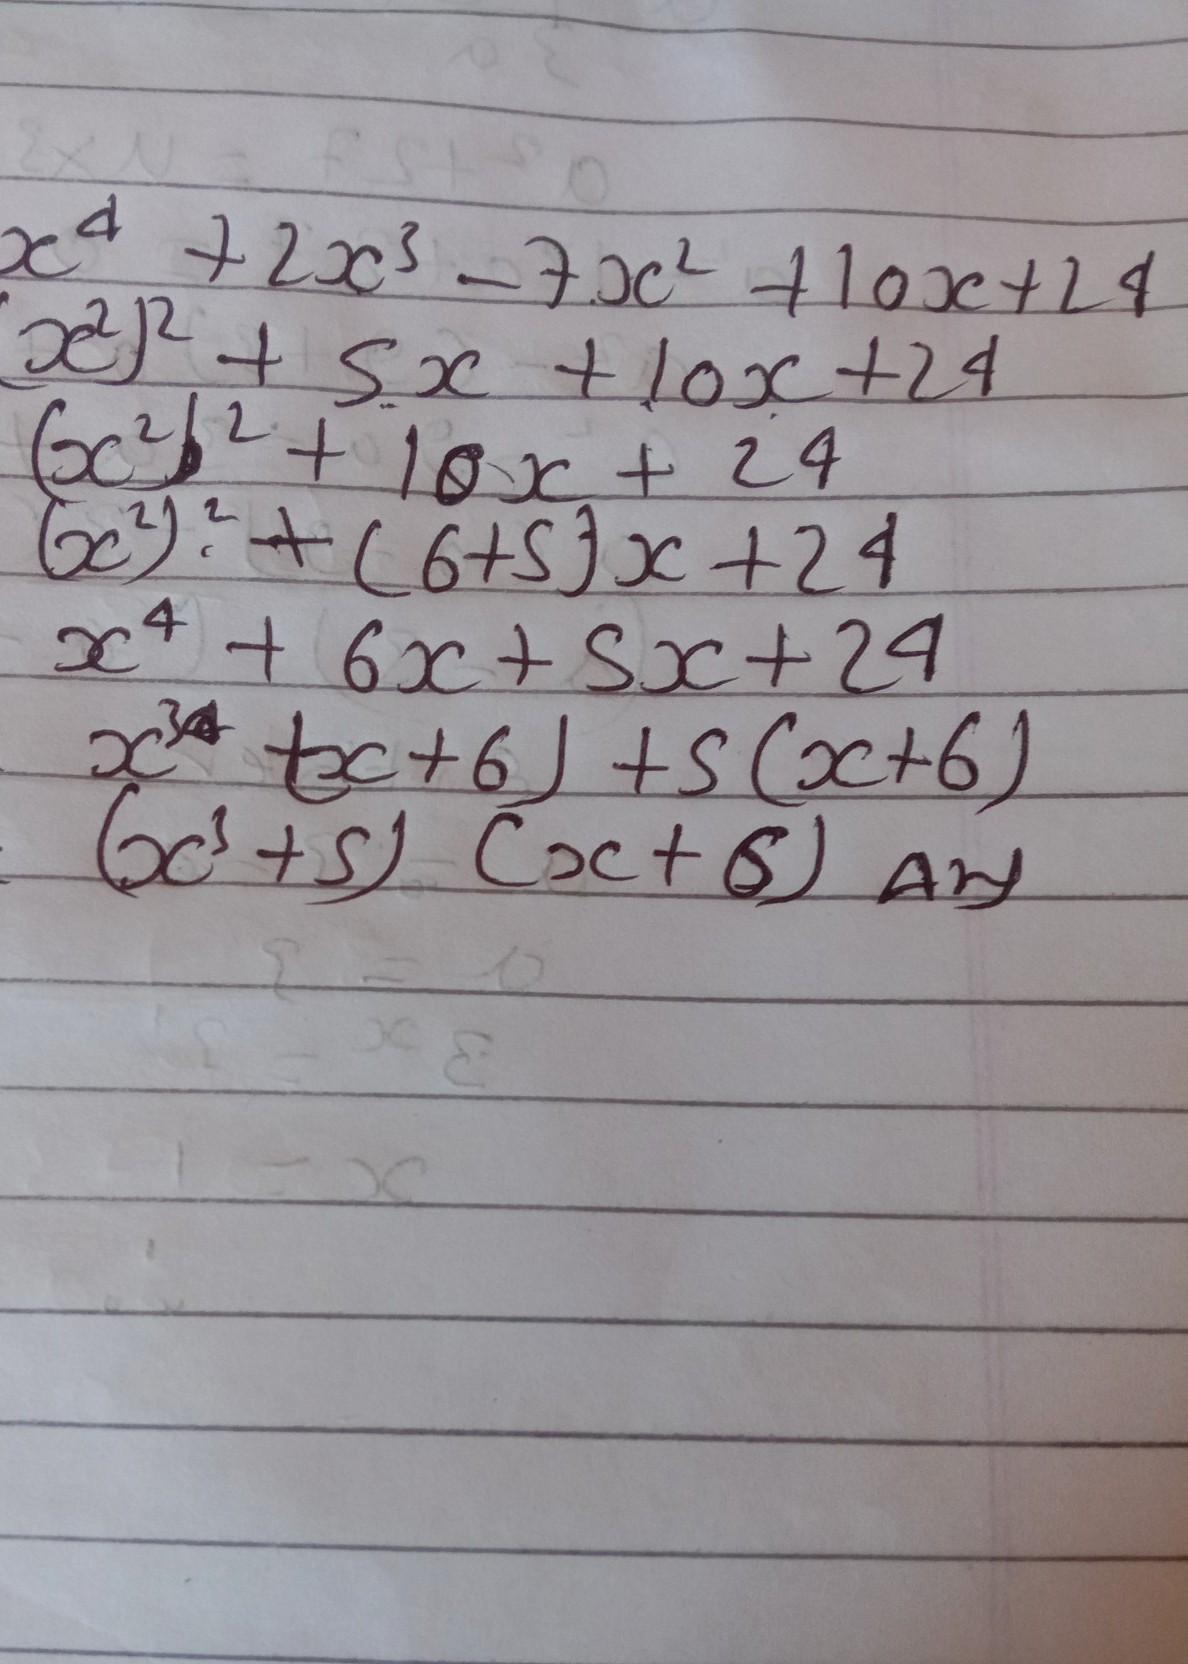 x⁴ + 2x³ - 7x² + 10x + 24
(x²)² + 5x + 10x + 24
(x²)² + 10x + 24
(x²)² + (6+5)x + 24
x⁴ + 6x + 5x + 24
x³ (x+6) + 5(x+6)
(x³+5) (x+6) Ans